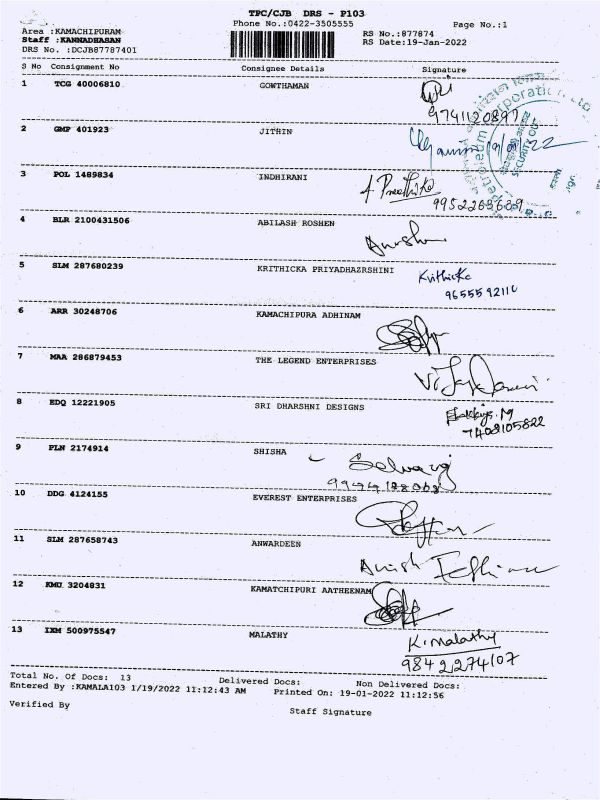 TPC/CJB DRS - P103
Phone No.:0422-3505555
Page No.:1
Area :KAMACHIPURAM
Staff :KANNADHASAN
DRS No. :DCJB87787401
RS No.:877874
RS Date:19-Jan-2022
S No Consignment No Consignee Details Signature
1 TCG 40006810 GOWTHAMAN
9741120897
2 GMP 401923 JITHIN
3 POL 1489834 INDHIRANI
A Preethika
9952263639
4 BLR 2100431506 ABILASH ROSHEN
5 SLM 287680239 KRITHICKA PRIYADHAZRSHINI
Krithicka
9655592110
6 ARR 30248706 KAMACHIPURA ADHINAM
7 MAA 286879453 THE LEGEND ENTERPRISES
8 EDQ 12221905 SRI DHARSHNI DESIGNS
7408105822
9 PLN 2174914 SHISHA
Selvaraj
10 DDG 4124155 EVEREST ENTERPRISES
11 SLM 287658743 ANWARDEEN
12 KMU 3204831 KAMATCHIPURI AATHEENAM
13 IXM 500975547 MALATHY
K. Malathy
9842274107
Total No. Of Docs: 13 Delivered Docs: Non Delivered Docs:
Entered By :KAMALA103 1/19/2022 11:12:43 AM Printed On: 19-01-2022 11:12:56
Verified By
Staff Signature